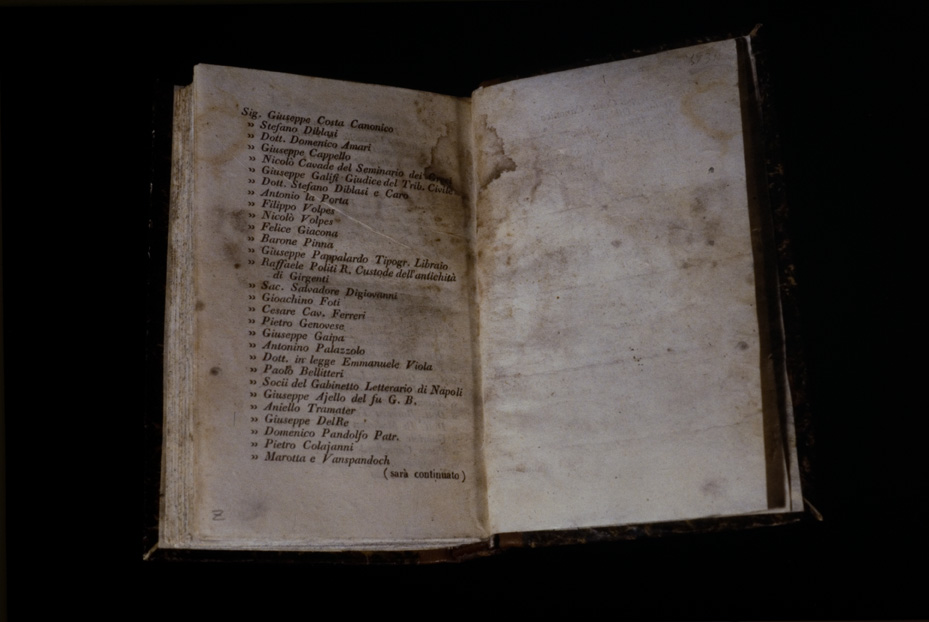 Sig. Giuseppe Costa Canonico
» Stefano Diblasi
» Dott. Domenico Amari
» Giuseppe Cappello
» Nicolò Cavade del Seminario dei Greci
» Giuseppe Galifi Giudice del Trib. Civile
» Dott. Stefano Diblasi e Caro
» Antonio la Porta
» Filippo Volpes
» Nicolò Volpes
» Felice Giacona
» Barone Pinna
» Giuseppe Pappalardo Tipogr. Libraio
» Raffaele Politi R. Custode dell'antichità
di Girgenti
» Sac. Salvadore Digiovanni
» Gioachino Foti
» Cesare Cav. Ferreri
» Pietro Genovese
» Giuseppe Gaipa
» Antonino Palazzolo
» Dott. in legge Emmanuele Viola
» Paolo Bellitteri
» Socii del Gabinetto Letterario di Napoli
» Giuseppe Ajello del fu G. B.
» Aniello Tramater
» Giuseppe DelRe
» Domenico Pandolfo Patr.
» Pietro Colajanni
» Marotta e Vanspandoch
(sarà continuato)